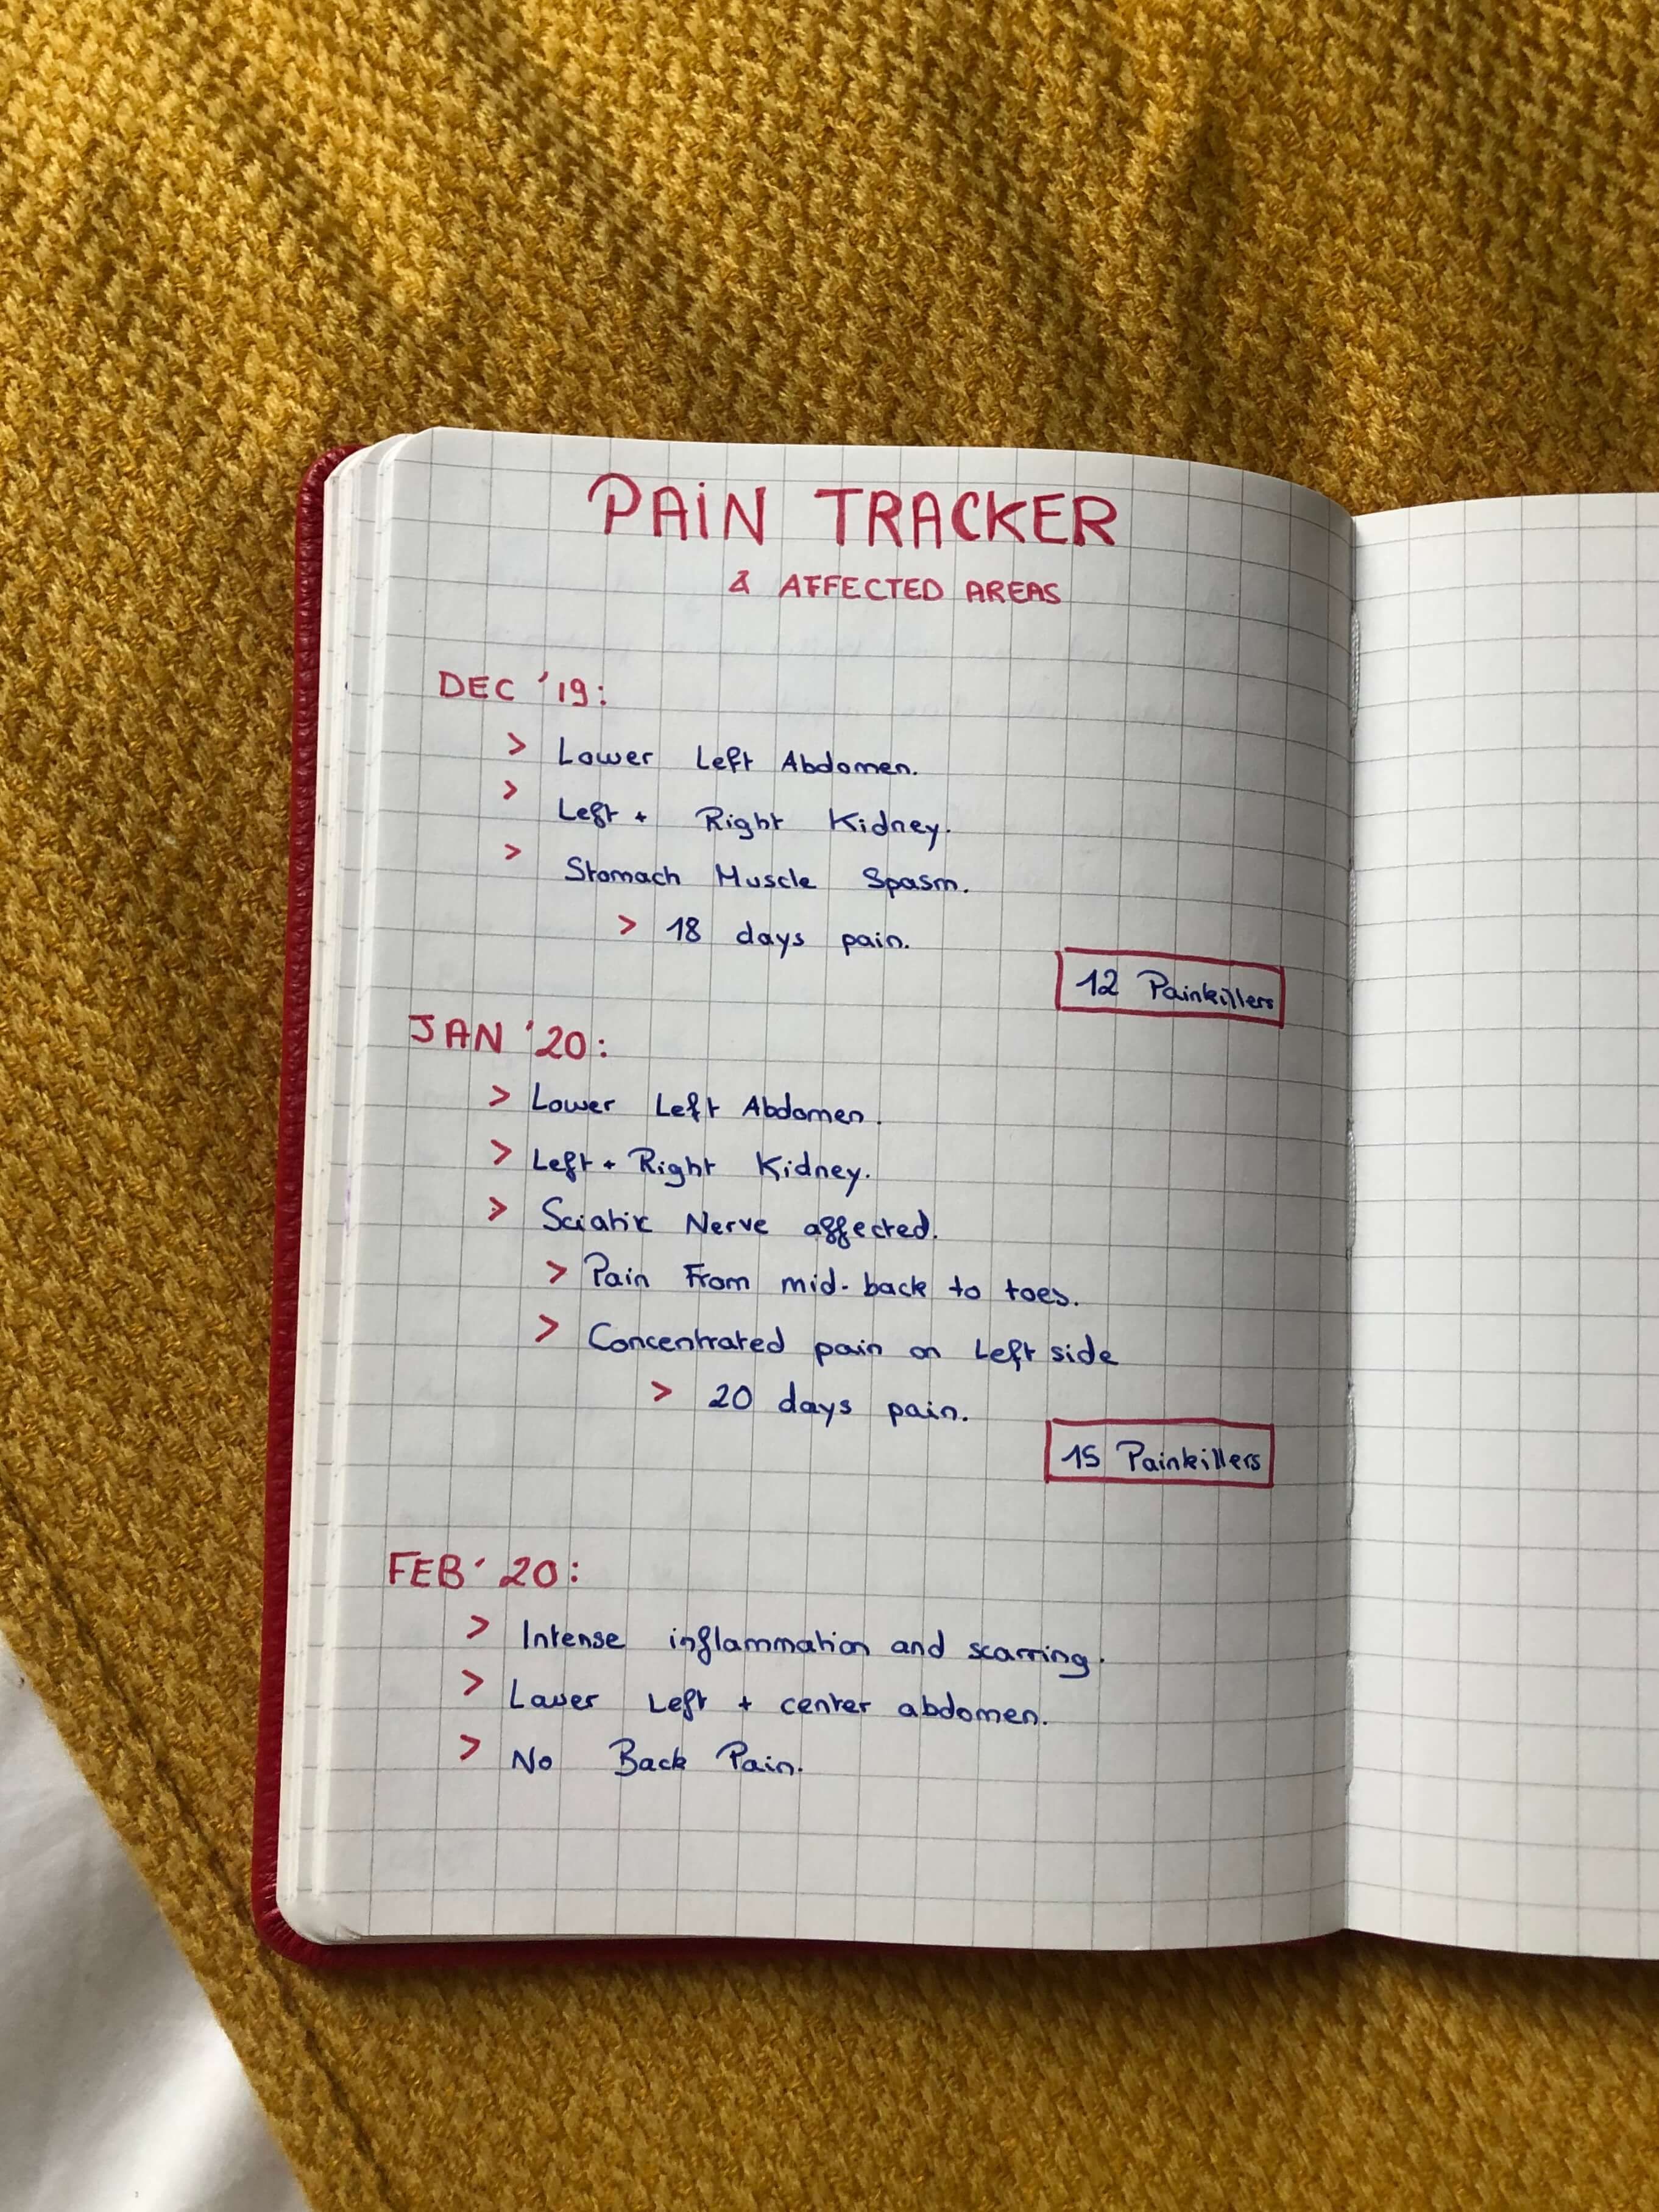 PAIN TRACKER
& AFFECTED AREAS
DEC '19:
> Lower Left Abdomen.
> Left + Right Kidney.
> Stomach Muscle Spasm.
> 18 days pain.
12 Painkillers
JAN '20:
> Lower Left Abdomen.
> Left + Right Kidney.
> Sciatic Nerve affected.
> Pain From mid-back to toes.
> Concentrated pain on Left side
> 20 days pain.
15 Painkillers
FEB '20:
> Intense inflammation and scarring.
> Lower Left + center abdomen.
> No Back Pain.